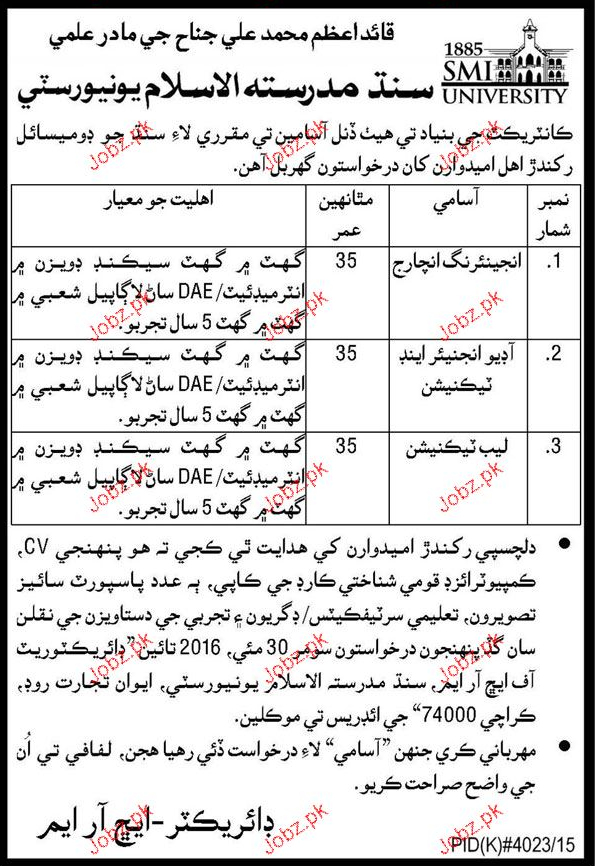 قائد اعظم محمد علي جناح جي مادر علمي
1885
SMI
UNIVERSITY
سنڌ مدرسته الاسلام يونيورسٽي
ڪانٽريڪٽ جي بنياد تي هيٺ ڏنل آسامين تي مقرري لاءِ سنڌ جو ڊوميسائل
رکندڙ اهل اميدوارن کان درخواستون گهربل آهن.
نمبر شمار
آسامي
مٿانهين عمر
اهليت جو معيار
1.
انجينئرنگ انچارج
35
گهٽ ۾ گهٽ سيڪنڊ ڊويزن ۾
انٽرميڊئيٽ/ DAE سان لاڳاپيل شعبي ۾
گهٽ ۾ گهٽ 5 سال تجربو.
2.
آڊيو انجنيئر اينڊ
ٽيڪنيشن
35
گهٽ ۾ گهٽ سيڪنڊ ڊويزن ۾
انٽرميڊئيٽ/ DAE سان لاڳاپيل شعبي ۾
گهٽ ۾ گهٽ 5 سال تجربو.
3.
ليب ٽيڪنيشن
35
گهٽ ۾ گهٽ سيڪنڊ ڊويزن ۾
انٽرميڊئيٽ/ DAE سان لاڳاپيل شعبي ۾
گهٽ ۾ گهٽ 5 سال تجربو.
• دلچسپي رکندڙ اميدوارن کي هدايت ٿي ڪجي ته هو پنهنجي CV,
ڪمپيوٽرائزڊ قومي شناختي ڪارڊ جي ڪاپي, ٻه عدد پاسپورٽ سائيز
تصويرون, تعليمي سرٽيفڪيٽس/ ڊگريون ۽ تجربي جي دستاويزن جي نقلن
سان گڏ پنهنجون درخواستون سومر 30 مئي, 2016 تائين ”ڊائريڪٽوريٽ
آف ايڇ آر ايم, سنڌ مدرسته الاسلام يونيورسٽي, ايوان تجارت روڊ,
ڪراچي 74000“ جي ائڊريس تي موڪلين.
• مهرباني ڪري جنهن ”آسامي“ لاءِ درخواست ڏئي رهيا هجن, لفافي تي اُن
جي واضح صراحت ڪريو.
ڊائريڪٽر-ايڇ آر ايم
PID(K)#4023/15
Jobz.pk